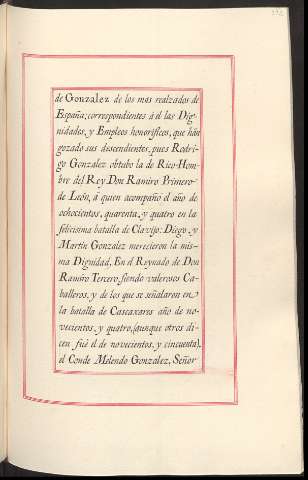 de Gonzalez de los mas realzados de
España; correspondientes á él las Dig-
nidades, y Empleos honoríficos, que hán
gozado sus descendientes, pues Rodri-
go Gonzalez obtubo la de Rico-Hom-
bre del Rey Don Ramiro Primero
de León, á quien acompaño el año de
ochocientos, quarenta, y quatro en la
felicisima batalla de Clavijo: Diego, y
Martin Gonzalez merecieron la mis-
ma Dignidad. En el Reynado de Don
Ramiro Tercero, siendo valerosos Ca-
balleros, y de los que se señalaron en
la batalla de Cascaxares año de no-
vecientos, y quatro, (aunque otros di-
cen fué él de novecientos, y cincuenta),
el Conde Melendo Gonzalez, Señor